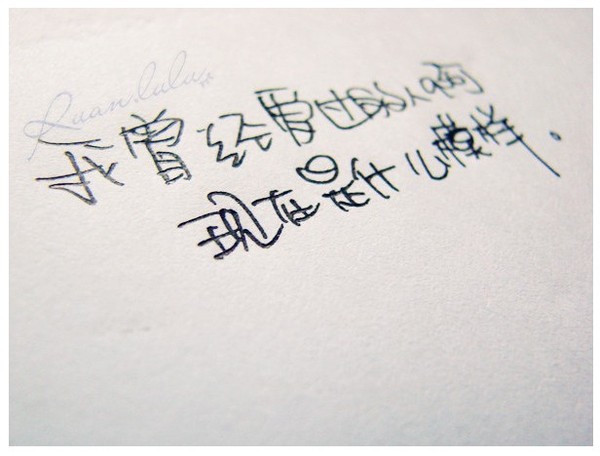 Ruan.lulu
我曾经爱过的人啊
现在是什么模样。